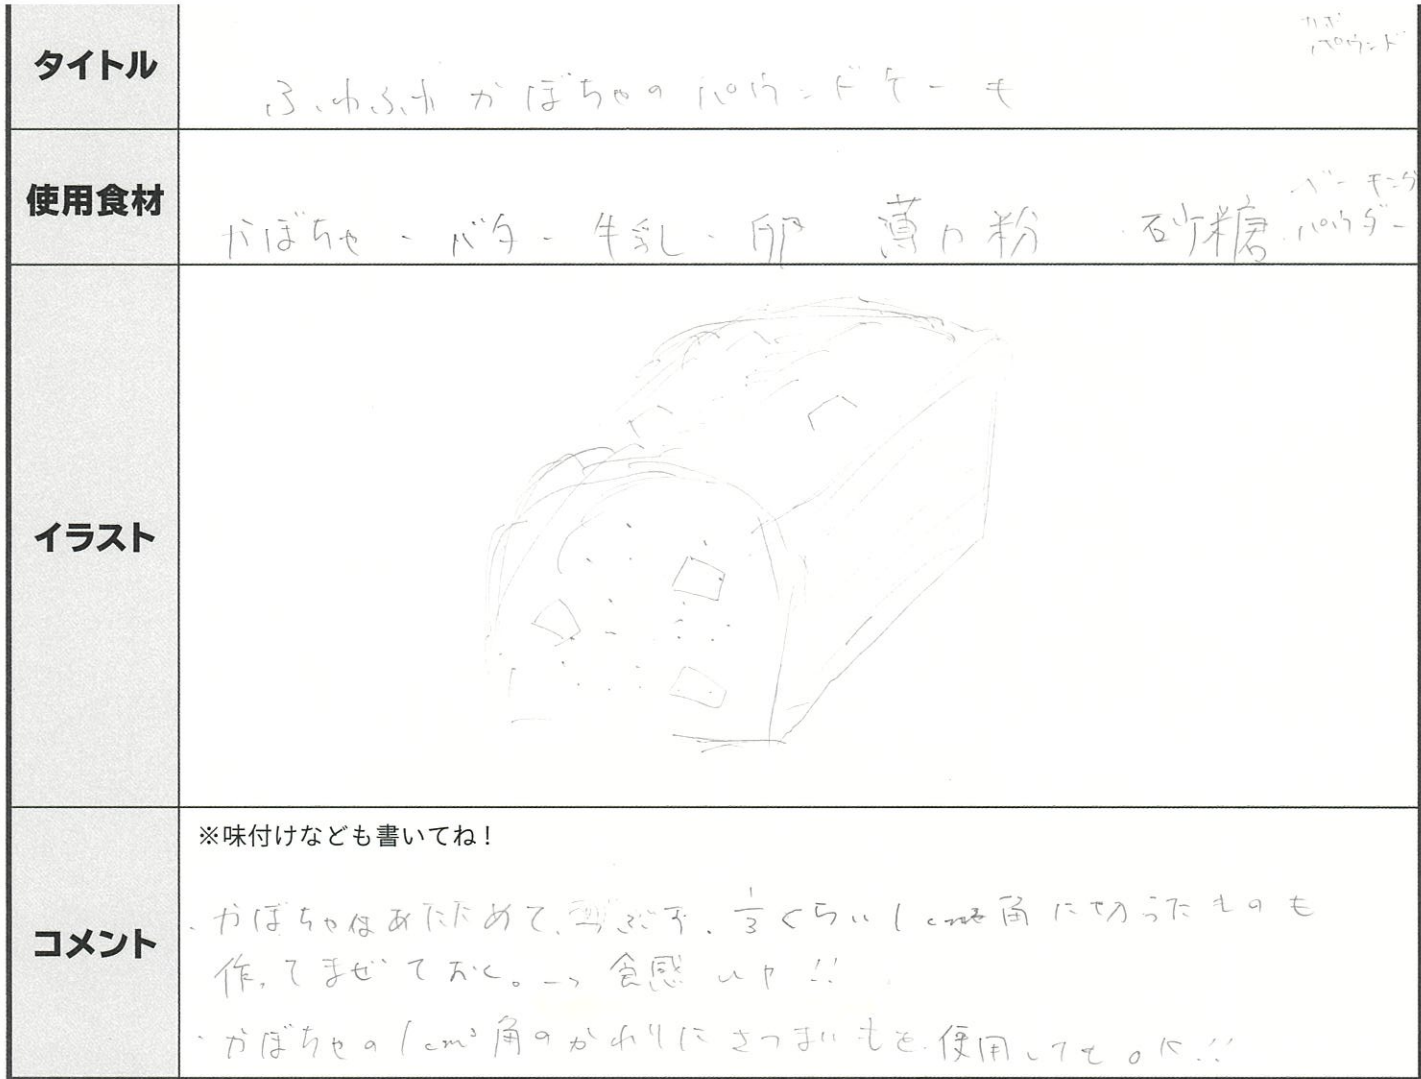 カボ
パウンド
タイトル
ふわふわ かぼちゃの パウンドケーキ
使用食材
かぼちゃ・バター 牛乳・卵 薄力粉 砂糖 ベーキング
パウダー
イラスト
※味付けなども書いてね!
コメント
・かぼちゃはあたためて、つぶす。1/3くらい1cm角に切ったものも
作ってまぜておく。→食感UP!!
・かぼちゃの1cm³角のかわりにさつまいもを使用してもOK!!